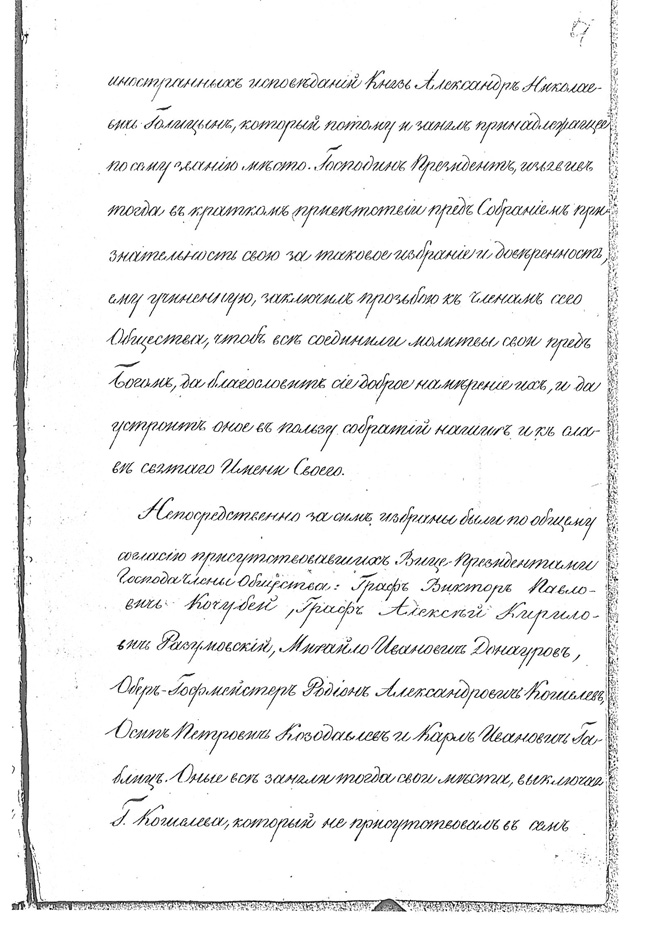 иностранныхъ исповѣданій Князь Александръ Николае-
вичь Голицынъ, который потому и занялъ принадлежащее
по сому званію мѣсто. Господинъ Президентъ, изъявивъ
тогда въ краткомъ привѣтствіи предъ Собраніемъ при-
знательность свою за таковое избраніе и довѣренность,
ему учиненную, заключилъ прозьбою къ членамъ сего
Общества, чтобъ всѣ соединили молитвы свои предъ
Богомъ, да благословитъ сіе доброе намѣреніе ихъ, и да
устроитъ оное въ пользу собратій нашихъ и къ сла-
вѣ святаго Имени Своего.
Непосредственно за симъ, избраны были по общему
согласію присутствовавшихъ Вице-Президентами
Господа члены Общества: Графъ Викторъ Павло-
вичь Кочубей, Графъ Алексѣй Кирило-
вичь Разумовскій, Михайло Ивановичь Донауровъ,
Оберъ-Гофмейстеръ Родіонъ Александровичь Кошелевъ,
Осипъ Петровичь Козодавлевъ и Карлъ Ивановичь Га-
блицъ. Оные всѣ заняли тогда свои мѣста, выключая
Г. Кошелева, который не присутствовалъ въ семъ